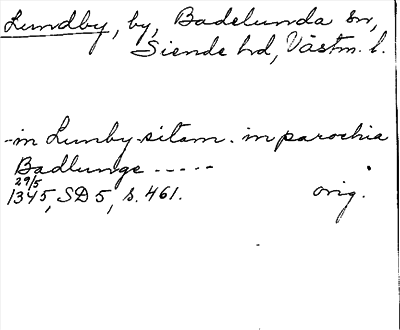 Lundby, by, Badelunda sn,
Siende hd, Västm. l.
-in Lunby sitam. in parochia
Badlunge -----
29/5
1345, SD 5, s. 461. orig.